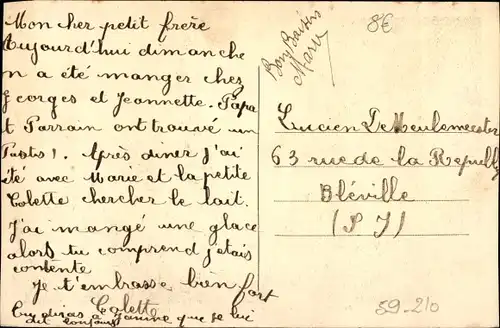 Mon cher petit frère
Aujourd'hui dimanche
on a été manger chez
Georges et Jeannette. Papa
et Parrain ont trouvé un
Après diner j'ai
été avec Marie et la petite
Colette chercher le lait.
J'ai mangé une glace
alors tu comprend j'etais
contente
Je t'embrasse bien fort
Colette
Tu diras à Janine que je lui
dit toujours
Bons Baisers
Marie
8€
Lucien De Meulemeester
63 rue de la Republiq
Bléville
(S I)
59-210